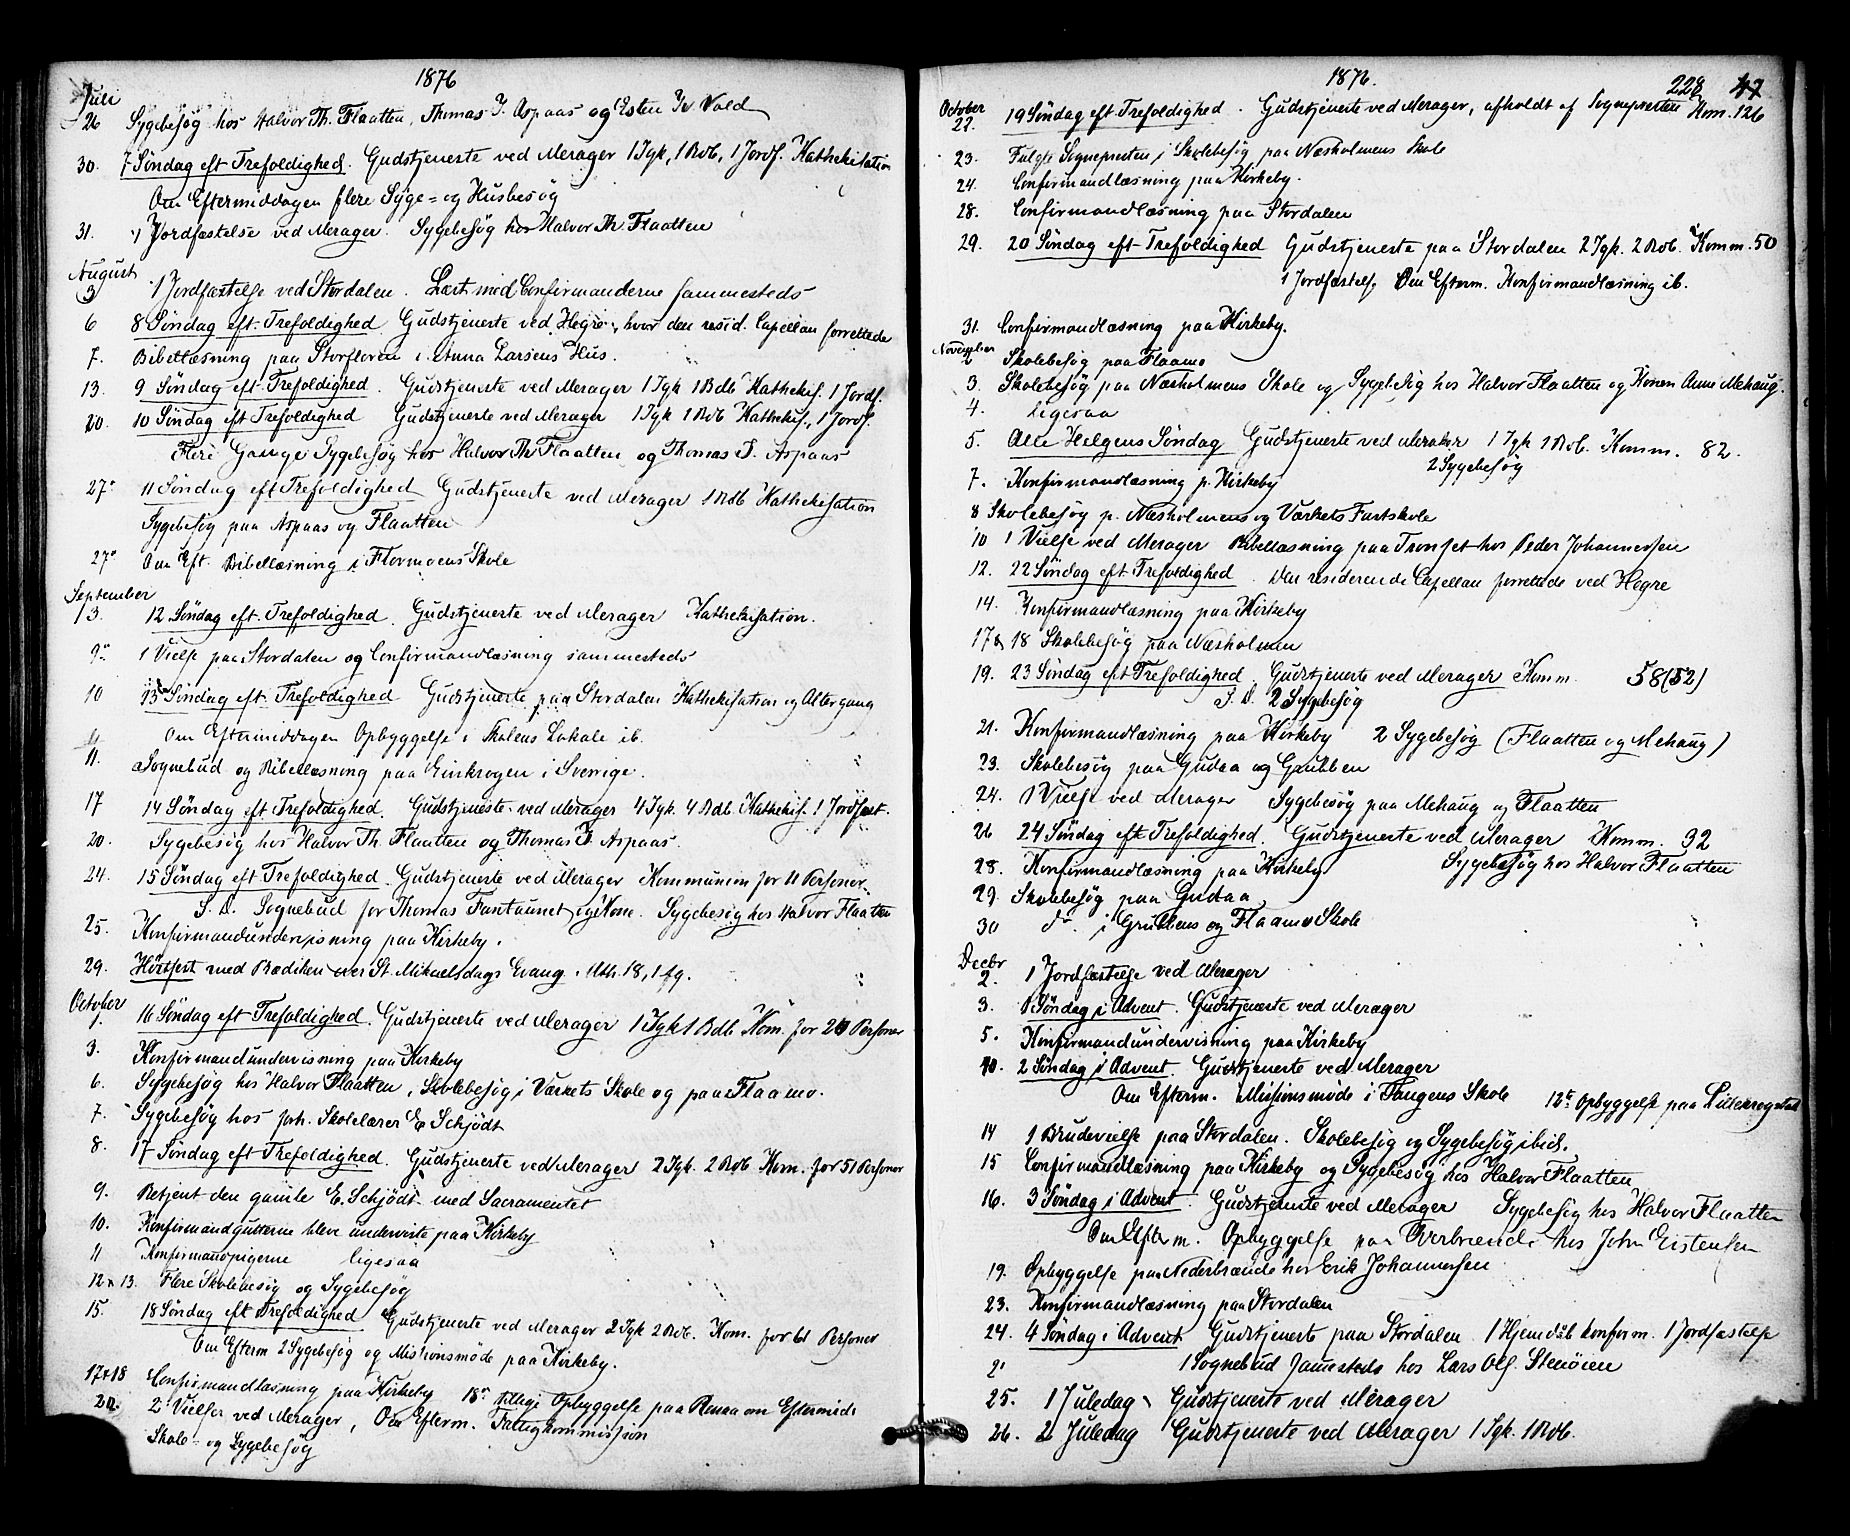 1876
Juli
26 Sygebesög hos Halvor Th. Flaatten, Thomas J. Aspaas og Esten Vold
30. 7 Söndag eft Trefoldighed. Gudstjeneste ved Merager 1 Igk, 1 Bdb, 1 Jordf. Kathekisation
Om Eftermiddagen flere Syge- og Husbesög
31. 1 Jordfæstelse ved Merager. Sygebesög hos Halvor Th Flaatten
August
3 1 Jordfæstelse ved Stordalen. Læst med Confirmanderne sammesteds
6 8 Söndag eft Trefoldighed Gudstjeneste ved Hegre, hvor den resid. Capellan forrettede
7. Bibellæsning paa Storfloren i Anna Larsens Hus.
13. 9 Söndag eft Trefoldighed. Gudstjeneste ved Merager 1 Igk 1 Bdb Kathekis. 1 Jordf.
20. 10 Söndag eft Trefoldighed Gudstjeneste ved Merager 1 Igk 1 Bdb Kathekis., 1 Jordf.
Flere Gange Sygebesög hos Halvor Th Flaatten og Thomas J. Aspaas
27. 11 Söndag eft Trefoldighed Gudstjeneste ved Merager 1 Bdb Kathekisation
Sygebesög paa Aspaas og Flaatten
27. Om Eft. Bibellæsning i Flormoens Skole
September
3. 12 Söndag eft Trefoldighed. Gudstjeneste ved Merager Kathekisation.
9. 1 Vielse paa Stordalen og Confirmandlæsning sammesteds
10 13 Söndag eft. Trefoldighed Gudstjeneste paa Stordalen Kathekisation og Altergang
Om Eftermiddagen Opbyggelse i Skolens Lokale ib.
11. Sognebud og Bibellæsning paa Einkrogen i Sverige.
17 14 Söndag eft Trefoldighed. Gudstjeneste ved Merager 4 Igk. 4 Bdb Kathekis. 1 Jordfæst.
20. Sygebesög hos Halvor Th. Flaatten og Thomas J. Aspaas.
24. 15 Söndag eft Trefoldighed. Gudstjeneste ved Merager Kommunion for 11 Personer
S. D. Sognebud for Thomas Fantaunet og Kone. Sygebesög hos Halvor Flaatten
25. Konfirmandundervisning paa Kirkeby.
29. Höstfest med Prædiken over St. Mikaelsdags Evang. Mth. 18, 1 fg.
October
1. 16 Söndag eft Trefoldighed. Gudstjeneste ved Merager 1 Igk 1 Bdb Kom. for 20 Personer
3. Konfirmandundervisning paa Kirkeby
6. Sygebesög hos Halvor Flaatten, Skolebesög i Værkets Skole og paa Flaamo.
7. Sygebesög hos forh. Skolelærer E Schjödt
8. 17 Söndag eft Trefoldighed. Gudstjeneste ved Merager 2 Igk. 2 Bdb Kom. for 51 Personer
9. Betjent den gamle E. Schjödt med Sacramentet
10. Konfirmandgutterne bleve underviste paa Kirkeby
11 Konfirmandpigerne ligesaa
12 & 13. Flere Skolebesög og Sygebesög
15. 18 Söndag eft Trefoldighed Gudstjeneste ved Merager 2 Igk 2 Bdb. Kom. for 61 Personer
Om Efterm 2 Sygebesög og Missionsmöde paa Kirkeby.
17 & 18 Confirmandlæsning paa Kirkeby 18de tillige Opbyggelse paa Renaa om Eftermidd.
20. 2 Vielser ved Merager, Om Efterm. Fattigkommission
Skole- og Sygebesög
1876.
228 47
October
22. 19 Söndag eft Trefoldighed. Gudstjeneste ved Merager, afholdt af Sognepresten Kom. 126
23. Fulgte Sognepresten i Skolebesög paa Næsholmens Skole
24. Confirmandlæsning paa Kirkeby.
28. Confirmandlæsning paa Stordalen
29. 20 Söndag eft Trefoldighed Gudstjeneste paa Stordalen 2 Igk. 2 Bdb. Komm. 50
1 Jordfæstelse Om Efterm. Konfirmandlæsning ib.
31. Confirmandlæsning paa Kirkeby.
November
2 Skolebesög paa Flaamo
3. Skolebesög paa Næsholmens Skole og Sygebesög hos Halvor Flaatten og Konen Anne Mehaug.
4. Ligesaa
5. Alle Helgens Söndag Gudstjeneste ved Meraker 1 Igk 1 Bdb. Komm. 82.
2 Sygebesög
7. Konfirmandlæsning p. Kirkeby
8 Skolebesög p. Næsholmens og Værkets Fastskole
10 1 Vielse ved Merager Bibellæsning paa Tronset hos Peder Johannessen
12. 22 Söndag eft Trefoldighed. Den residerende Capellan forrettede ved Hegre
14. Konfirmandlæsning paa Kirkeby
17 & 18 Skolebesög paa Næsholmen
19. 23 Söndag eft Trefoldighed. Gudstjeneste ved Merager Komm. 58 (52)
S. D. 2 Sygebesög
21. Konfirmandlæsning paa Kirkeby 2 Sygebesög (Flaatten og Mehaug)
23. Skolebesög paa Gudaa og Grubben
24. 1 Vielse ved Merager Sygebesög paa Mehaug og Flaatten
26 24 Söndag eft Trefoldighed. Gudstjeneste ved Merager Komm. 32
28. Konfirmandlæsning paa Kirkeby Sygebesög hos Halvor Flaatten
29 Skolebesög paa Gudaa
30 do. i Grubbens og Flaamo Skole
Decbr
2. 1 Jordfæstelse ved Merager
3. 1 Söndag i Advent. Gudstjeneste ved Merager
5. Konfirmandundervisning paa Kirkeby
10. 2 Söndag i Advent. Gudstjeneste ved Merager
Om Efterm. Missionsmöde i Tangens Skole 12te Opbyggelse paa Lillekrogstad
14 1 Brudevielse paa Stordalen. Skolebesög og Sygebesög ibid.
15 Confirmandlæsning paa Kirkeby og Sygebesög hos Halvor Flaatten
16. 3 Söndag i Advent. Gudstjeneste ved Merager Sygebesög hos Halvor Flaatten
Om Efterm. Opbyggelse paa Overbrænde hos John Eistensen
19. Opbyggelse paa Nederbrænde hos Erik Johannessen
23. Konfirmandlæsning paa Stordalen
24. 4 Söndag i Advent Gudstjeneste paa Stordalen 1 Hjemdöb konform. 1 Jordfæstelse
1 Sognebud sammesteds hos Lars Ols. Stenöien
25. 1 Juledag Gudstjeneste ved Merager
26. 2 Juledag Gudstjeneste ved Merager 1 Igk. 1 Bdb.